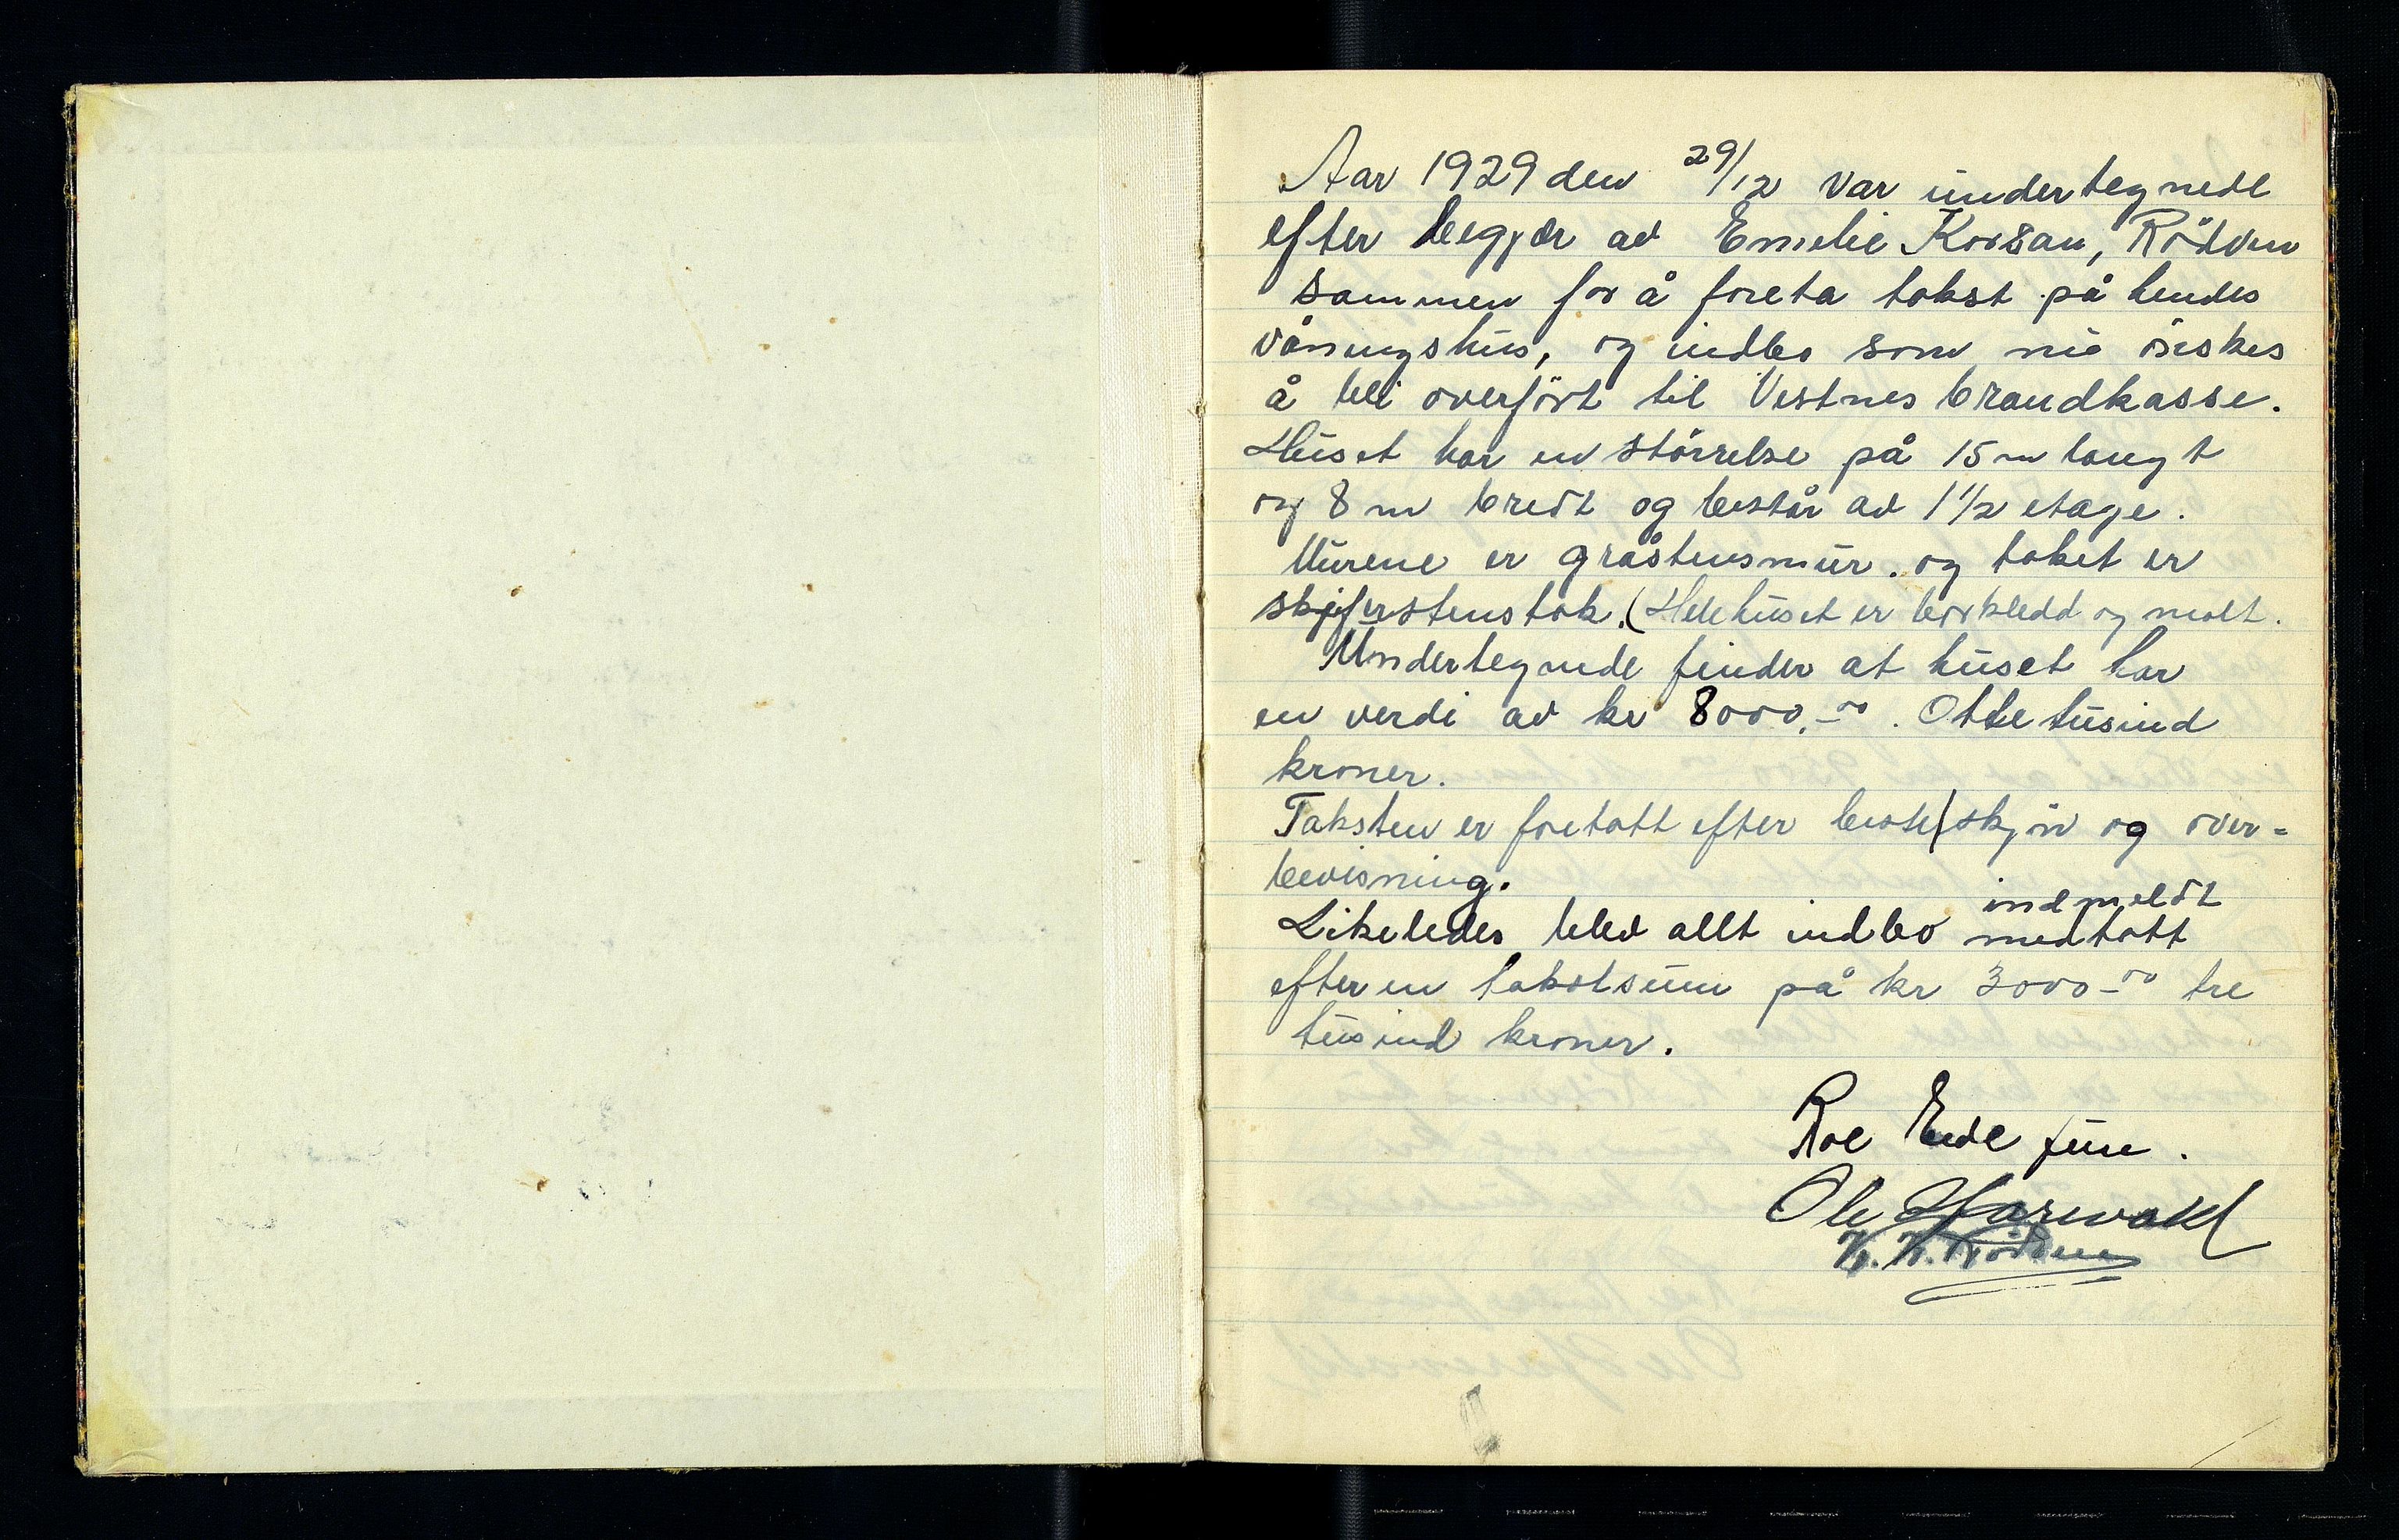 Aar 1929 den 29/12 var undertegnede
efter begjær av Emelie Korsan, Rödven
sammen for å foreta takst på hendes
våningshus, og indbo som nu önskes
å bli overfört til Vestnes brandkasse.
Huset har en störrelse på 15 m langt
og 8 m bredt og består av 1 1/2 etage.
Murene er gråstensmur. og taket er
skjferstenstak. (Hele huset er borkledd og malt.
Undertegnede finder at huset har
en verdi av kr 8000,-00. Otte tusind
kroner.
Taksten er foretatt efter beste skjön og over-
bevisning.
indmeldt
Likeledes blev allt indbo medtatt
efter en takstsum på kr 3000-00 tre
tusind kroner.
Roe Eide jun.
Ole Harevold
K. K. Rödven